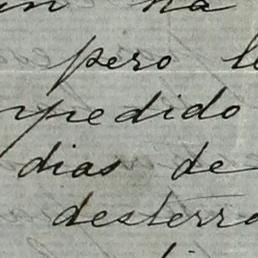 pero l
pedido
dias de
desterr